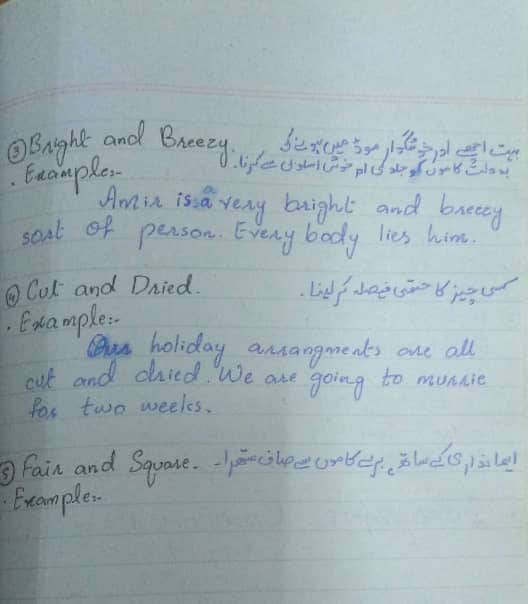 ③ Bright and Breezy. بہت اچھے اور خوشگوار موڈ میں ہونے کی
. Example:- بدولت کاموں کو جلدی اور خوش اسلوبی سے کرنا۔
Amir is a very bright and breezy
sort of person. Every body lies him.
④ Cut and Dried. کسی چیز کا حتمی فیصلہ کر لینا۔
. Example:-
Our holiday arrangments are all
cut and dried. We are going to murrie
for two weeks.
⑤ Fair and Square. ایمانداری کے ساتھ، برے کاموں سے صاف ستھرا۔
. Example:-